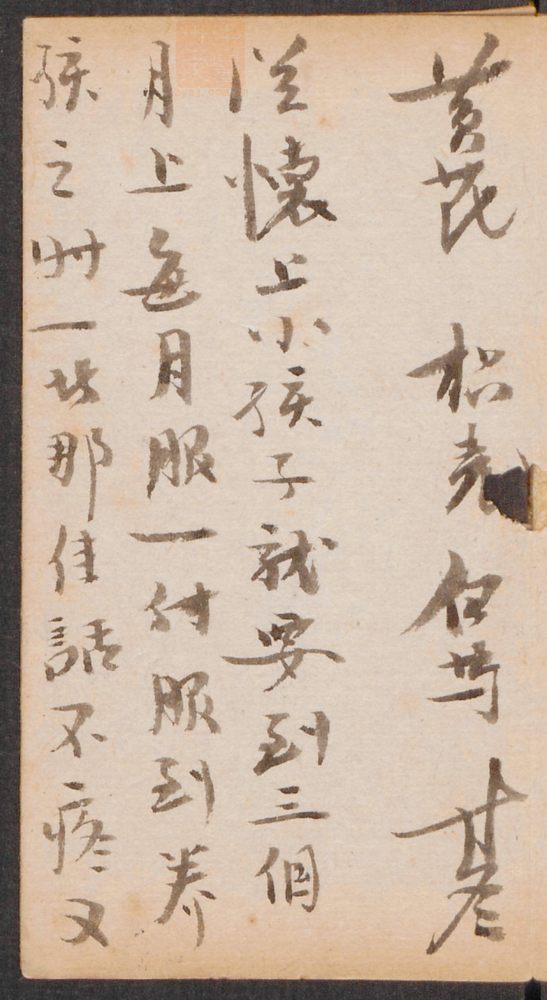 黄芪 枳壳 白芍 甘草
从懷上小孩子就要到三個
月上每月服一付服到养
孩之时一
那
話不疼又